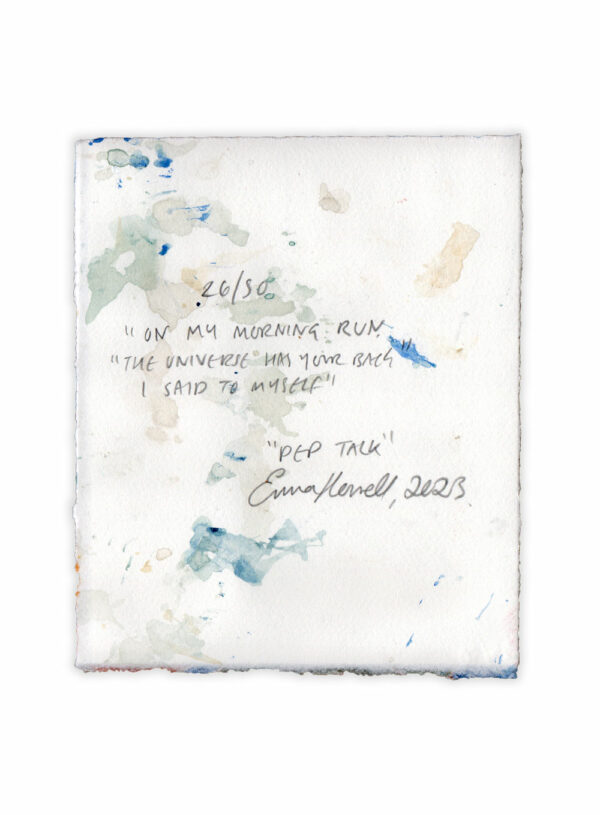 26/50
"ON MY MORNING RUN
"THE UNIVERSE HAS YOUR BACK"
I SAID TO MYSELF"
"PEP TALK"
Emma Howell, 2023